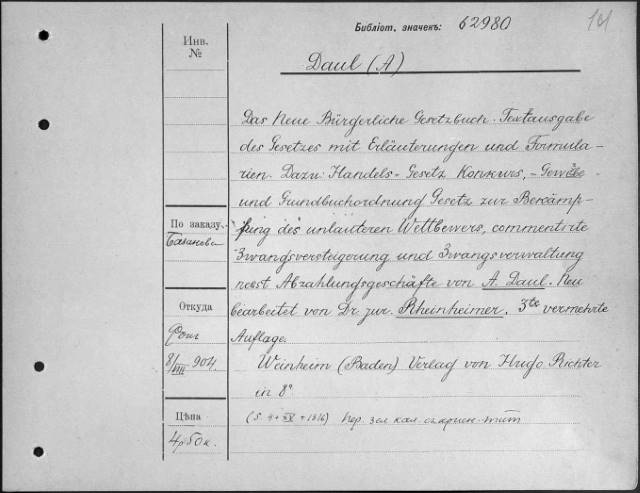 Библіот. значекъ: 62980
101
Инв.
№
Daul (A)
Das Neue Bürgerliche Gesetzbuch. Textausgabe
des Gesetzes mit Erläuterungen und Formula-
rien. Dazu: Handels- Gesetz Konkurs, - Gewerbe
und Grundbuchordnung Gesetz zur Bekämp-
fung des unlauteren Wettbewers, commentirte
Zwangsversteigerung und Zwangsverwaltung
nebst Abzahlungsgeschäfte von A. Daul. Neu
bearbeitet von Dr. jur. Rheinheimer. 3te vermehrte
Auflage.
Weinheim (Baden) Verlag von Hugo Richter
in 8°
По заказу.
Откуда
8/VIII 904.
Цѣна
4р50к.